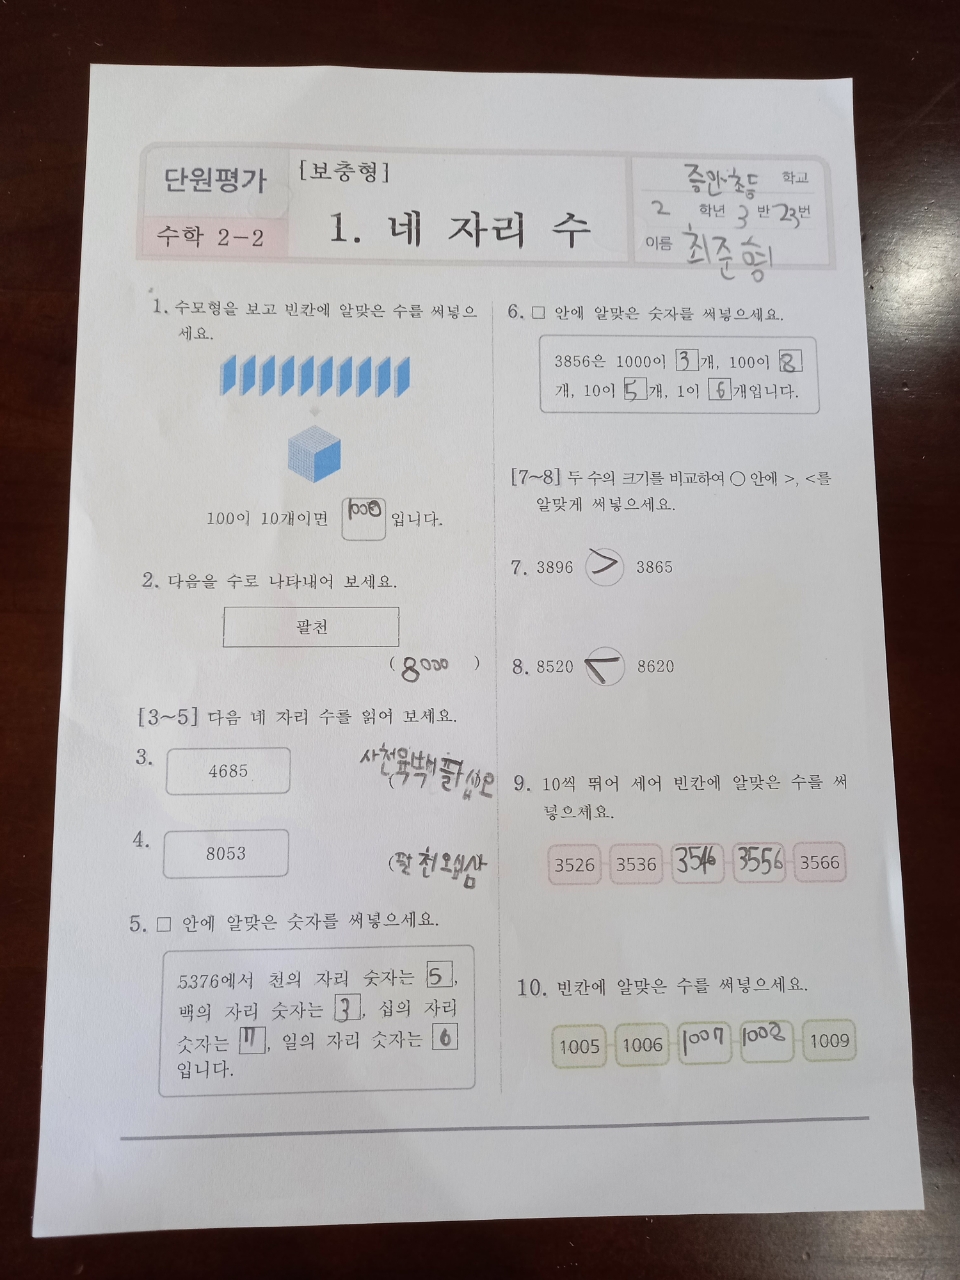 단원평가
[보충형]
수학 2-2
1. 네 자리 수
증안초등 학교
2 학년 3 반 23번
이름 최준형
1. 수모형을 보고 빈칸에 알맞은 수를 써넣으
세요.
100이 10개이면 1000 입니다.
2. 다음을 수로 나타내어 보세요.
팔천
( 8000 )
[3~5] 다음 네 자리 수를 읽어 보세요.
3. 4685 ( 사천육백팔십오
4. 8053 ( 팔천오십삼
5. □ 안에 알맞은 숫자를 써넣으세요.
5376에서 천의 자리 숫자는 5,
백의 자리 숫자는 3, 십의 자리
숫자는 7, 일의 자리 숫자는 6
입니다.
6. □ 안에 알맞은 숫자를 써넣으세요.
3856은 1000이 3개, 100이 8
개, 10이 5개, 1이 6개입니다.
[7~8] 두 수의 크기를 비교하여 ○ 안에 >, <를
알맞게 써넣으세요.
7. 3896 > 3865
8. 8520 < 8620
9. 10씩 뛰어 세어 빈칸에 알맞은 수를 써
넣으세요.
3526 3536 3546 3556 3566
10. 빈칸에 알맞은 수를 써넣으세요.
1005 1006 1007 1008 1009